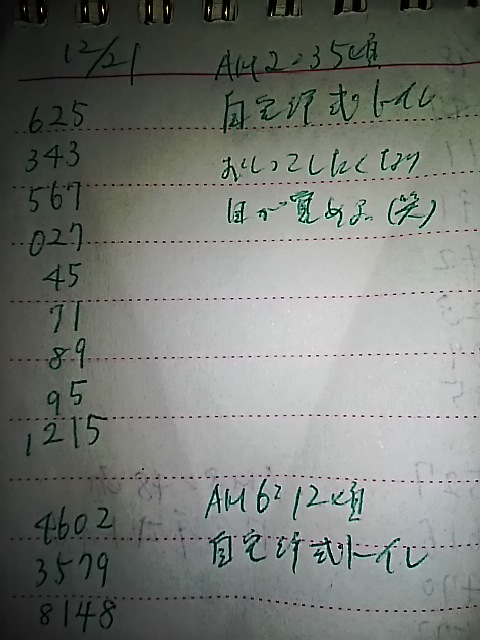 12/21 AM2:35頃
625 自宅洋式トイレ
343 おしっこしたくなり
567 目が覚める(笑)
027
45
71
89
95
1215
4602 AM6:12頃
3579 自宅洋式トイレ
8148